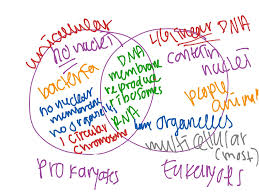 unicellular
no nuclei
bacteria
no nuclear
membrane
no organelles
1 circular
chromosome
DNA
membrane
reproduce
ribosomes
RNA
linear DNA
contain
nuclei
people
animal
organelles
multicellular
(most)
Prokaryotes
Eukaryotes